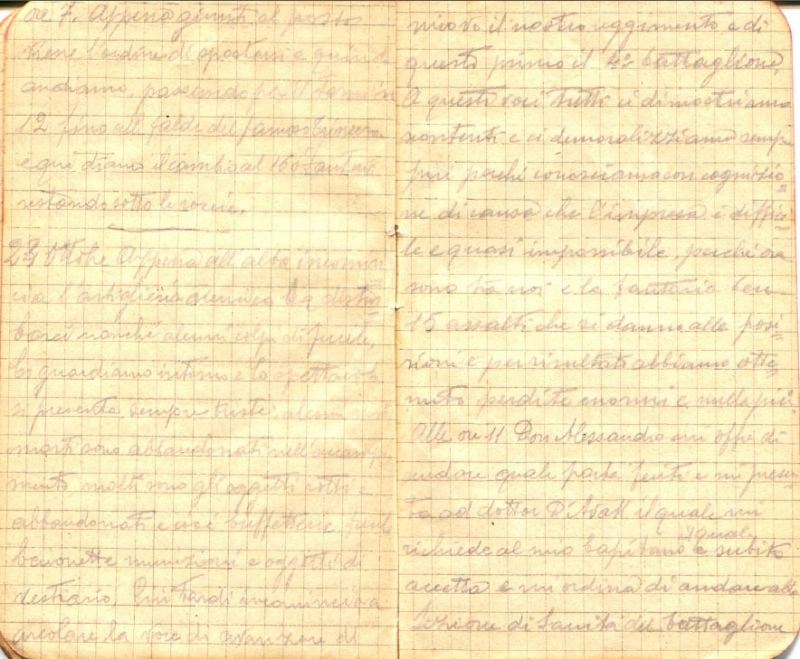 ore 7. Appena giunti al posto
viene l'ordine di spostarsi e quindi
andiamo, passando per il
12 fino alle falde del famoso
e qui diamo il cambio al 160 Fanteria
restando sotto le roccie.
23 Ottobre Appena all'alba incomin
cia l'artiglieria nemica a distur
barci nonché alcuni colpi di fucile,
ci guardiamo intorno e lo spettacolo
si presenta sempre triste, alcuni
morti sono abbandonati nell'accampa
mento molti sono gli oggetti rotti e
abbandonati e cioè buffetterie, fucili
baionette munizioni e oggetti di
vestiario. Più tardi incomincia a
circolare la voce di avanzare di
nuovo il nostro reggimento e di
questo primo il 4º battaglione.
A questi voci tutti ci dimostriamo
scontenti e ci demoralizziamo sempre
più perché conosciamo con cognizio=
ne di causa che l'impresa è diffici=
le e quasi impossibile, perché ora
sono tra noi e la fanteria ben
15 assalti che si danno alle posi=
zioni e per risultati abbiamo otte=
nuto perdite enormi e nulla più.
Alle ore 11 Don Alessandro mi offre di
andare quale porta feriti e mi presen
ta ad dottor il quale mi
richiede al mio Capitano il quale subito
accetta e mi ordina di andare alla
Sezione di Sanità del battaglione